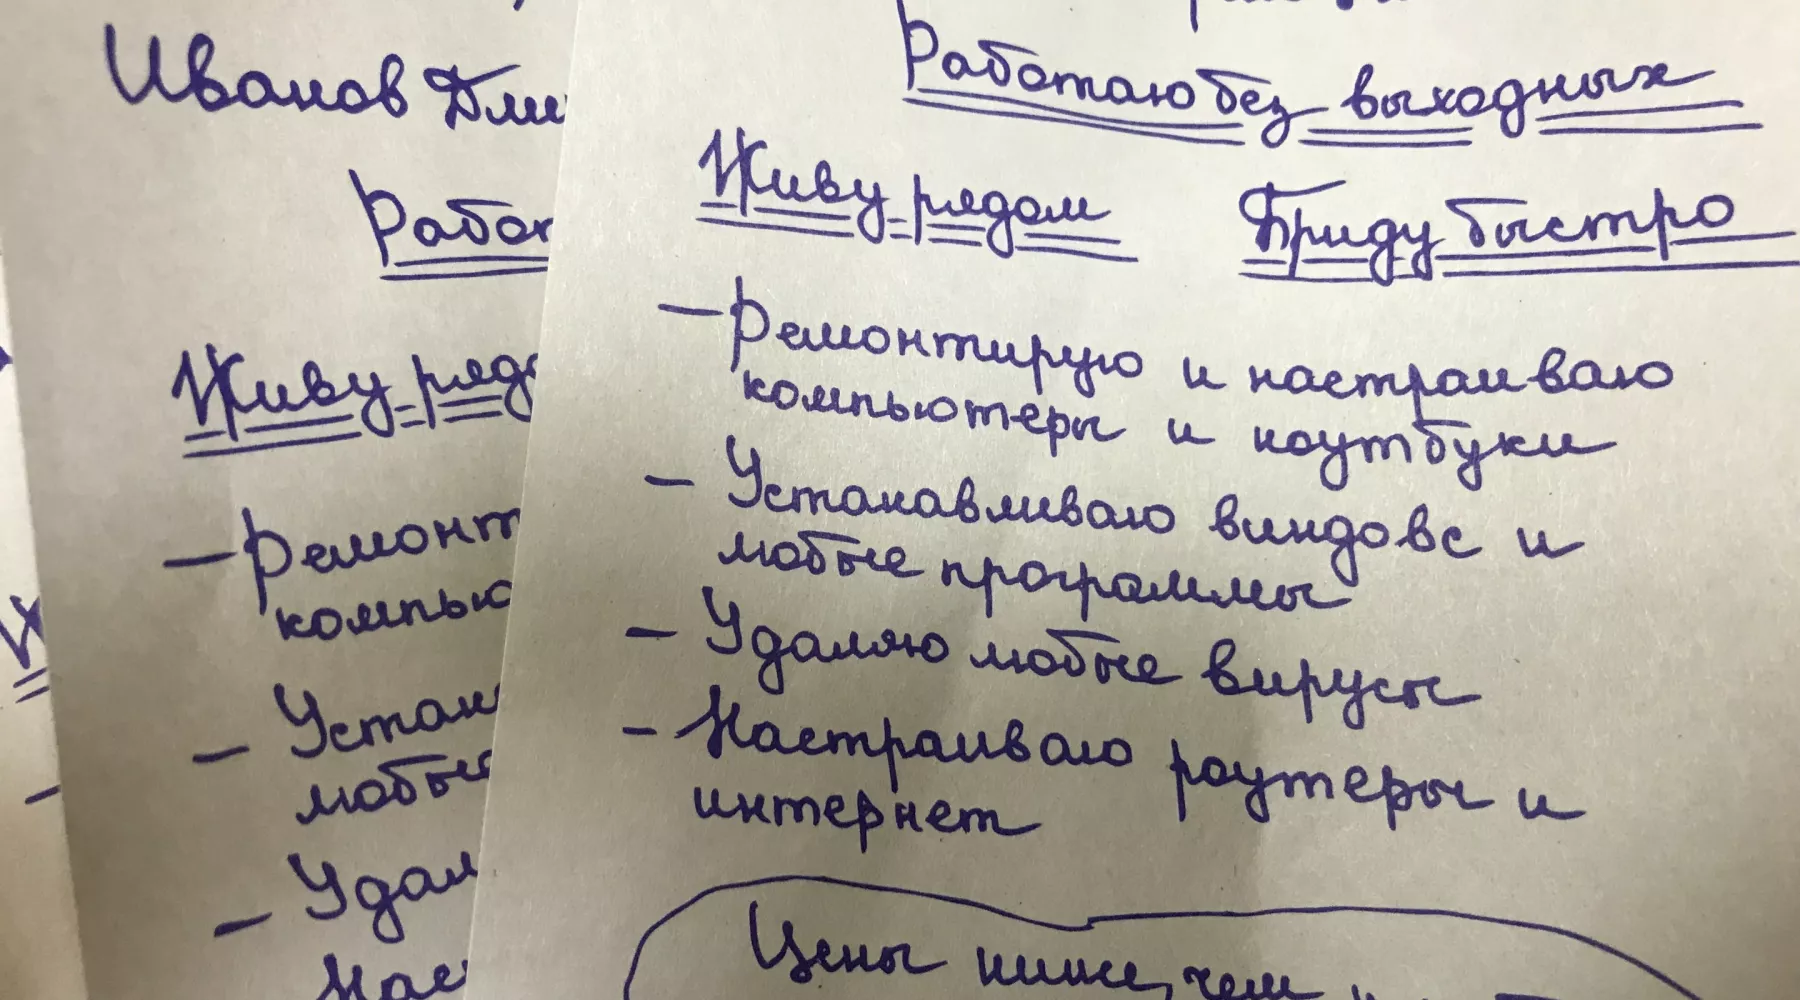 Иванов Дми
Работ
Живу рядо
– Ремонт
компью
– Устан
любые
– Удал
Нас
Работаю без выходных
Живу рядом Приду быстро
– Ремонтирую и настраиваю
компьютеры и ноутбуки
– Устанавливаю виндовс и
любые программы
– Удаляю любые вирусы
– Настраиваю роутеры и
интернет
Цены ниже, чем